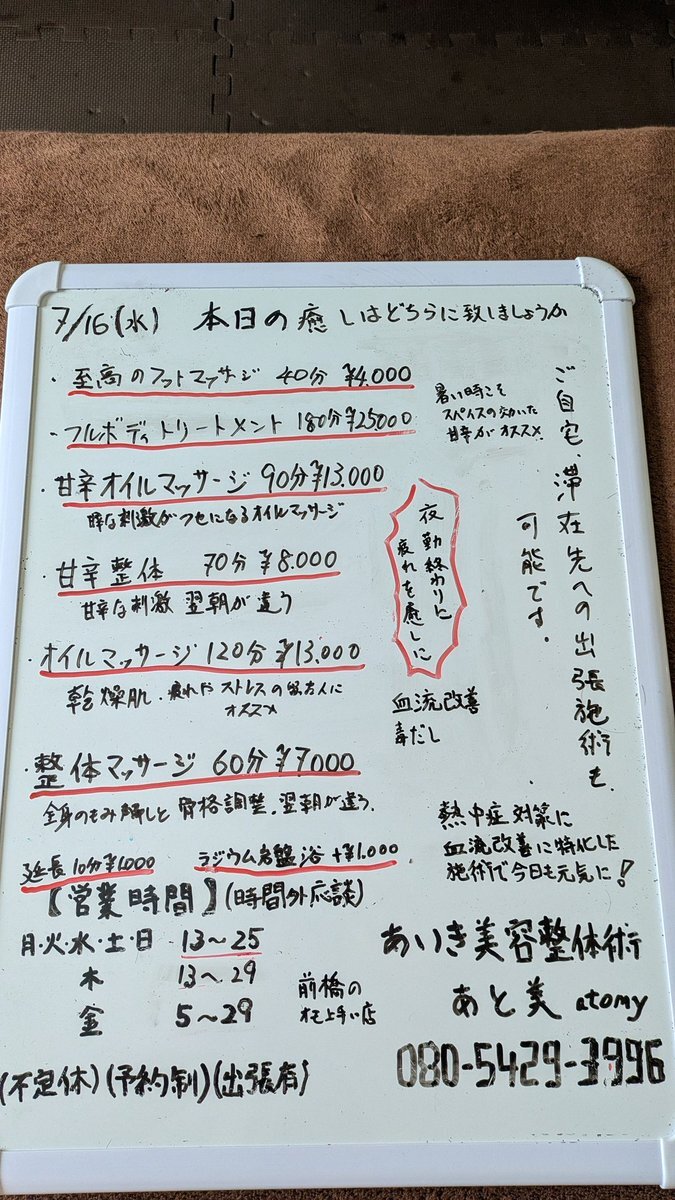 7/16(水) 本日の癒しはどちらに致しましょうか
・至高のフットマッサージ 40分 ¥4,000
・フルボディトリートメント 180分¥25000
暑い時こそ
スパイスの効いた
甘辛がオススメ
・甘辛オイルマッサージ 90分¥13,000
な刺激がクセになるオイルマッサージ
・甘辛整体 70分 ¥8,000
甘辛な刺激 翌朝が違う
・オイルマッサージ 120分 ¥13,000
乾燥肌・疲れやストレスの方に
オススメ
・整体マッサージ 60分 ¥7,000
全身のもみ解しと骨格調整、翌朝が違う
延長10分¥1,000 ラジウム岩盤浴 +¥1,000
夜勤終わりに
疲れを癒しに
血流改善
毒だし
ご自宅、滞在先への出張施術も
可能です。
熱中症対策に
血流改善に特化した
施術で今日も元気に!
【営業時間】(時間外応談)
月・火・水・土・日 13~25
木 13~29
金 5~29
前橋の
店
(不定休)(予約制)(出張有)
あいき美容整体術
あと美 atomy
080-5429-3996